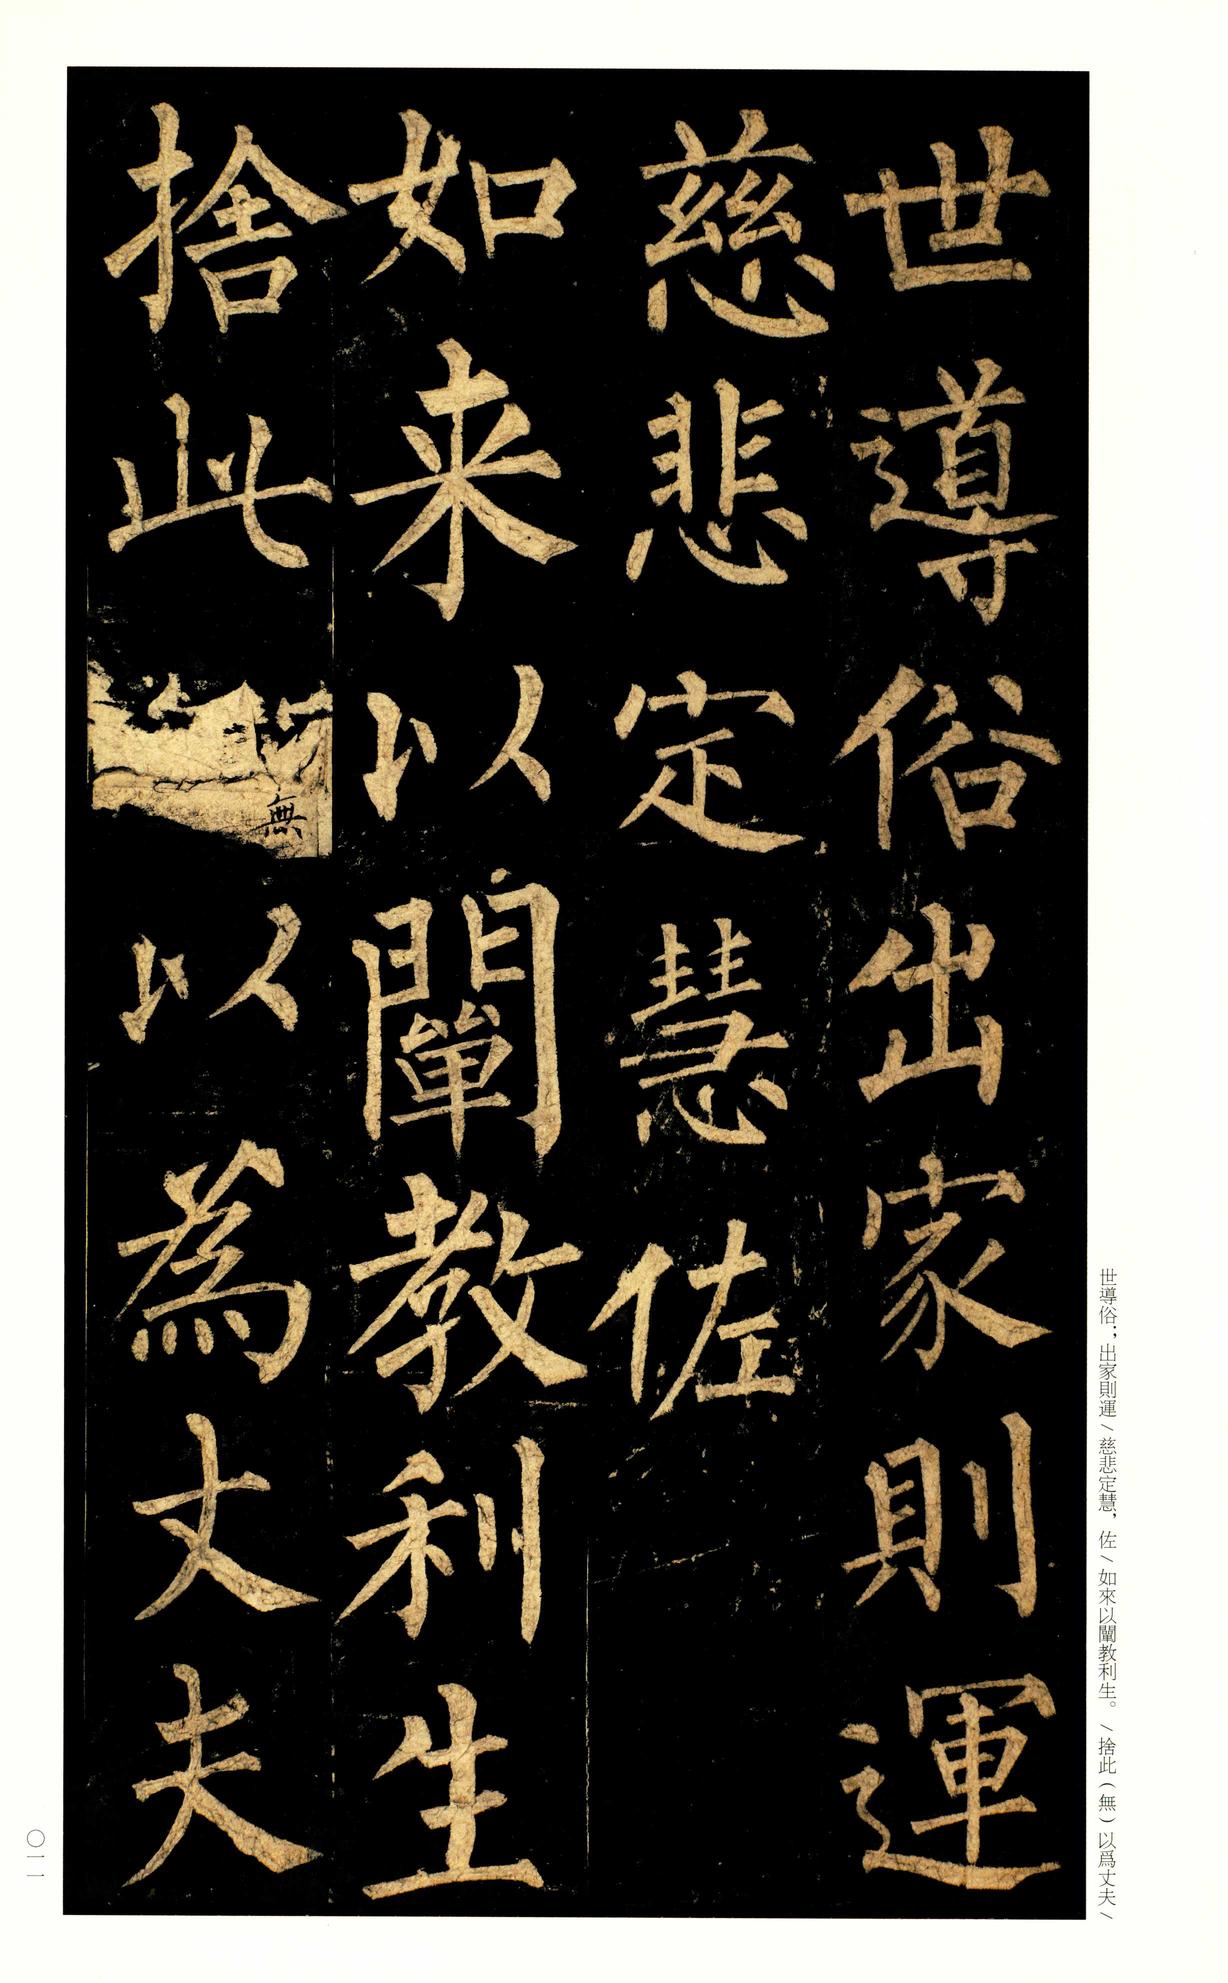 世導俗出家則運
慈悲定慧佐
如来以闡教利生
捨此無以為丈夫
世導俗；出家則運／慈悲定慧，佐／如來以闡教利生。／捨此（無）以爲丈夫／
〇一一